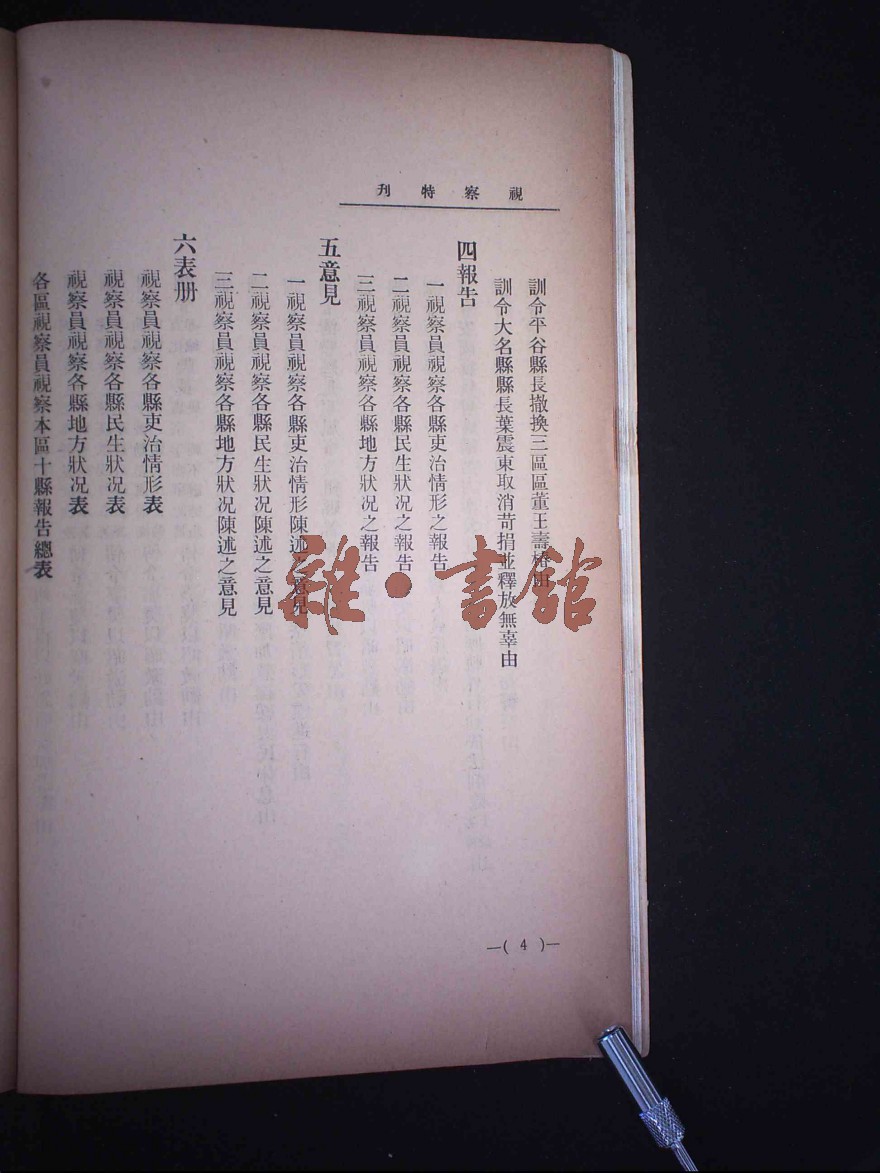 視察特刊
訓令平谷縣長撤換三區區董王壽椿由
訓令大名縣縣長葉震東取消苛捐並釋放無辜由
四報告
一視察員視察各縣吏治情形之報告
二視察員視察各縣民生狀况之報告
三視察員視察各縣地方狀况之報告
五意見
一視察員視察各縣吏治情形陳述之意見
二視察員視察各縣民生狀况陳述之意見
三視察員視察各縣地方狀况陳述之意見
六表册
視察員視察各縣吏治情形表
視察員視察各縣民生狀况表
視察員視察各縣地方狀况表
各區視察員視察本區十縣報告總表
—( 4 )—
雜·書館